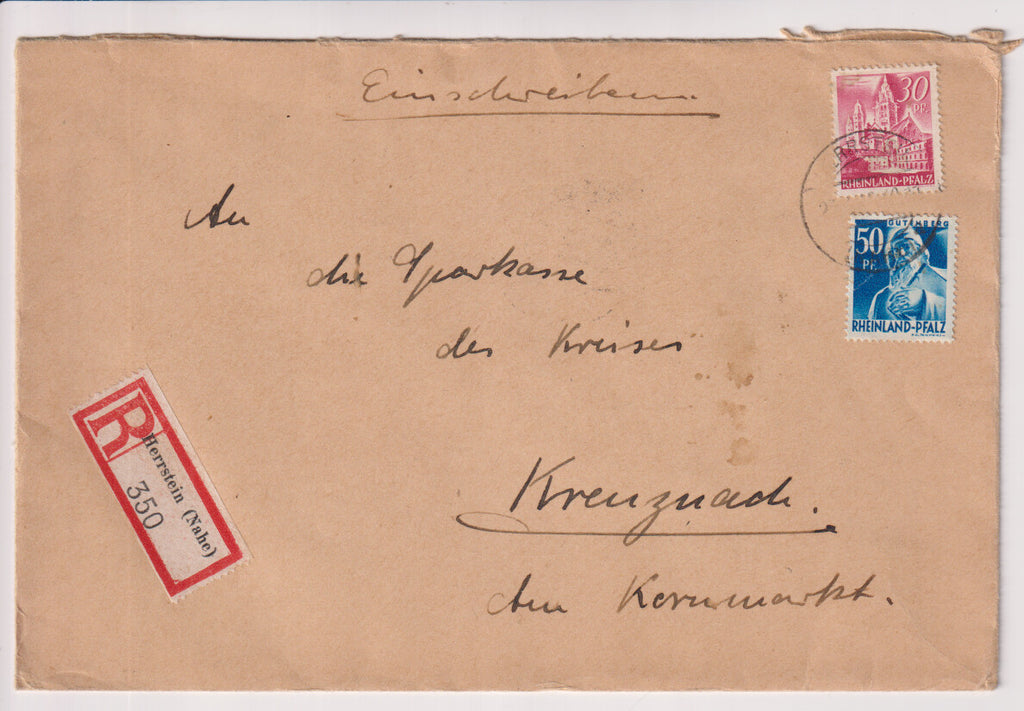 Einschreiben.
30
PF.
RHEINLAND-PFALZ
GUTENBERG
50
PF.
RHEINLAND-PFALZ
An
die Sparkasse
des Kreises
Kreuznach.
Am Kornmarkt.
R
Herrstein (Nahe)
350